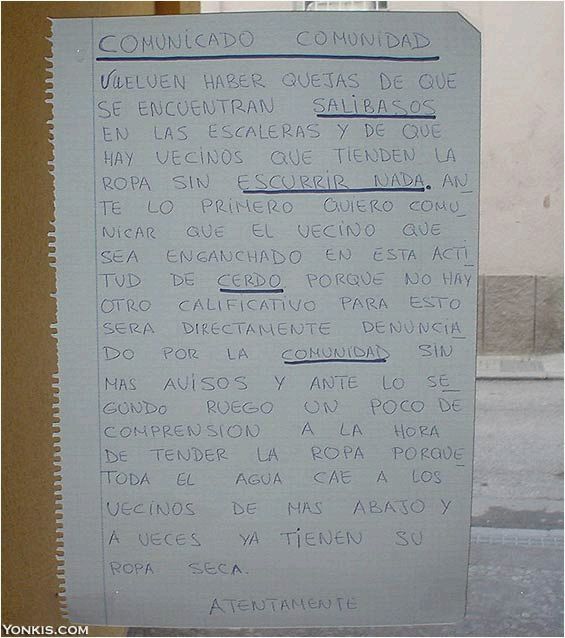 COMUNICADO COMUNIDAD
VUELUEN HABER QUEJAS DE QUE
SE ENCUENTRAN SALIBASOS
EN LAS ESCALERAS Y DE QUE
HAY VECINOS QUE TIENDEN LA
ROPA SIN ESCURRIR NADA. AN_
TE LO PRIMERO QUIERO COMU_
NICAR QUE EL VECINO QUE
SEA ENGANCHADO EN ESTA ACTI_
TUD DE CERDO PORQUE NO HAY
OTRO CALIFICATIVO PARA ESTO
SERA DIRECTAMENTE DENUNCIA_
DO POR LA COMUNIDAD SIN
MAS AVISOS Y ANTE LO SE_
GUNDO RUEGO UN POCO DE
COMPRENSION A LA HORA
DE TENDER LA ROPA PORQUE_
TODA EL AGUA CAE A LOS
VECINOS DE MAS ABAJO Y
A VECES YA TIENEN SU
ROPA SECA.
ATENTAMENTE
YONKIS.COM